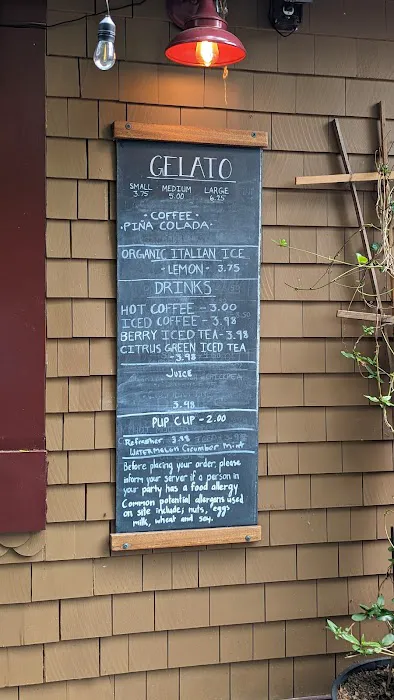 GELATO
SMALL MEDIUM LARGE
3.75 5.00 6.25
· COFFEE ·
· PIÑA COLADA ·
ORGANIC ITALIAN ICE
- LEMON - 3.75
DRINKS
HOT COFFEE - 3.00
ICED COFFEE - 3.98
BERRY ICED TEA - 3.98
CITRUS GREEN ICED TEA
- 3.98
JUICE
3.98
PUP CUP - 2.00
Refresher 3.98
WATERMELON Cucumber Mint
Before placing your order, please
inform your server if a person in
your party has a food allergy
Common potential allergens used
on site include; nuts, eggs
milk, wheat and soy.